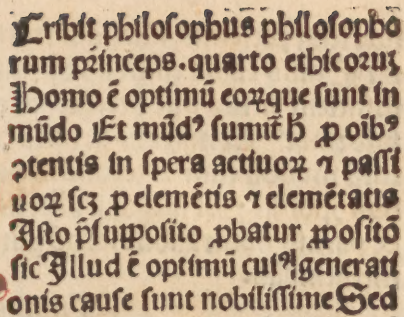 Cribit philosophus philosopho
rum princeps. quarto ethicoruꝫ
Homo ē optimū eoꝝ que sunt in
mūdo Et mūdꝰ sumit̄ h̄ ꝓ oībꝰ
ꝯtentis in spera actiuoꝝ ⁊ passi
uoꝝ scꝫ ꝓ elemētis ⁊ elemētatis
Isto p̄supposito ꝓbatur ꝓpositō
sic Illud ē optimū cuiꝰ generati
onis cause sunt nobilissime Sed